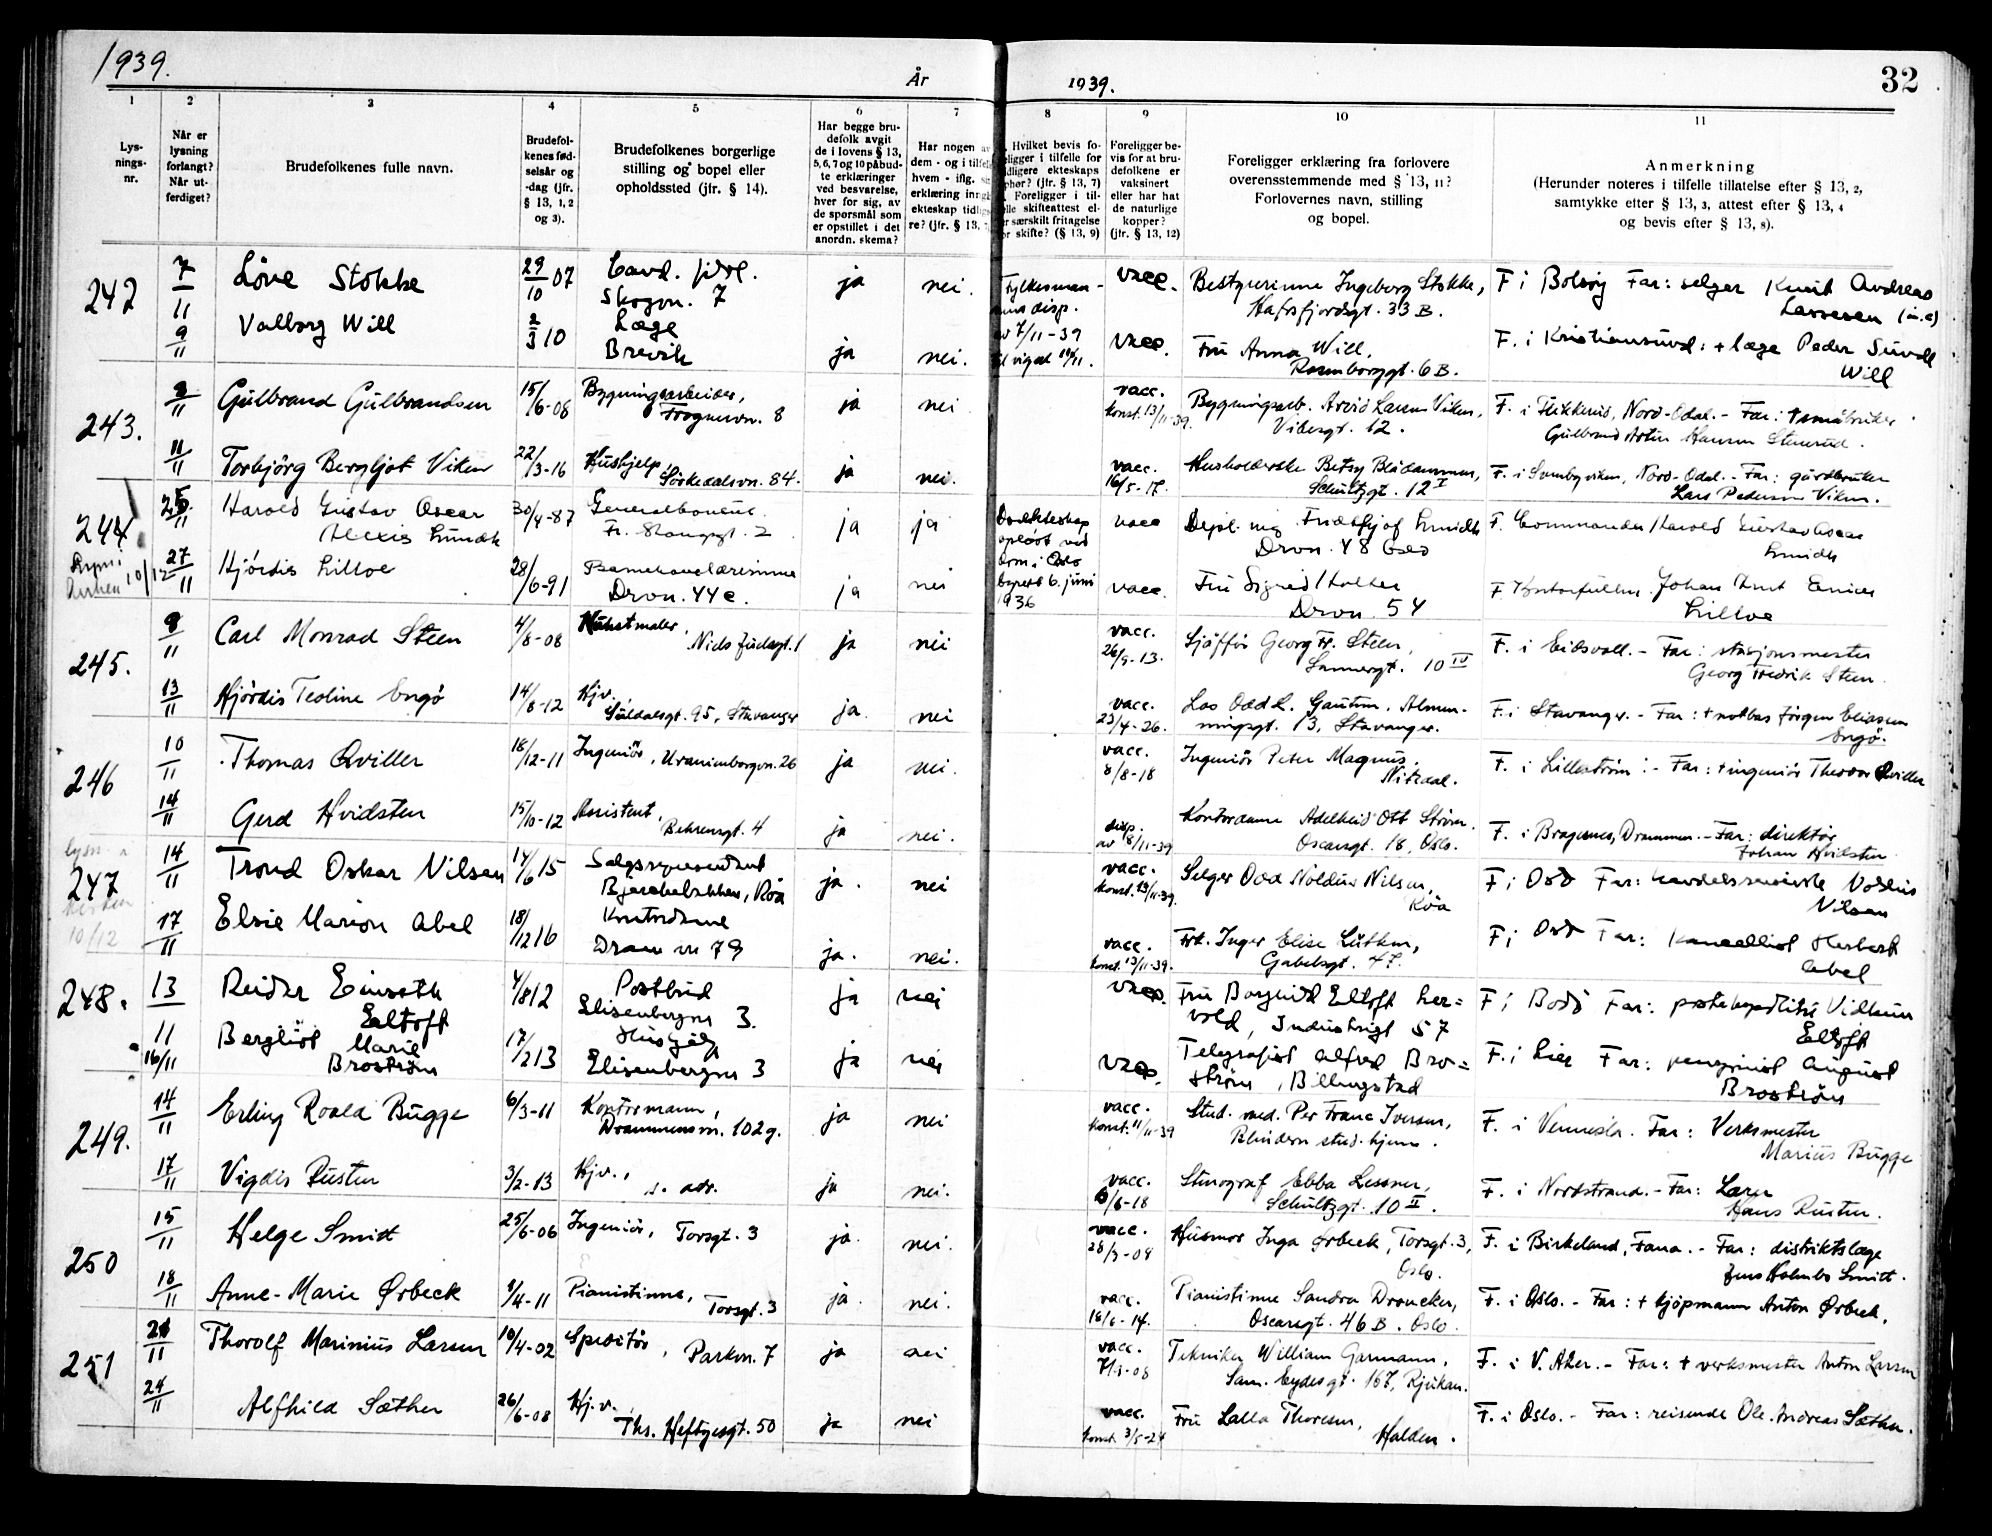 1939.
År 1939.
32
1 2 3 4 5 6 7 8 9 10 11
Lys-
nings-
nr.
Når er
lysning
forlangt?
Når ut-
ferdiget?
Brudefolkenes fulle navn.
Brudefol-
kenes fød-
selsår og
-dag (jfr.
§ 13, 1, 2
og 3).
Brudefolkenes borgerlige
stilling og bopel eller
opholdssted (jfr. § 14).
Har begge bru-
defolk avgit
de i lovens § 13,
5, 6, 7 og 10 påbud-
te erklæringer
ved besvarelse,
hver for sig, av
de spørsmål som
er opstillet i det
anordn. skema?
Har nogen av
dem - og i tilfel
hvem - iflg.
erklæring inng
ekteskap tidlig
re? (jfr. § 13,
Hvilket bevis fo-
religger i tilfelle for
tidligere ekteskaps
ophør? (jfr. § 13, 7)
Foreligger i til-
felle skifteattest el-
er særskilt fritagelse
or skifte? (§ 13, 9)
Foreligger be-
vis for at bru-
defolkene er
vaksinert
eller har hat
de naturlige
kopper?
(jfr. § 13, 12)
Foreligger erklæring fra forlovere
overensstemmende med § 13, 11?
Forlovernes navn, stilling
og bopel.
Anmerkning
(Herunder noteres i tilfelle tillatelse efter § 13, 2,
samtykke efter § 13, 3, attest efter § 13, 4
og bevis efter § 13, 8).
242 7/11 Stokke 29/10 07 Cand. ja nei. Fylkesman- vacc. Bestyrerinne Ingeborg Stokke, F i Bolsøy Far: selger Knut Andreas
Skogvn. 7 disp. Hafrsfjordsgt. 33 B. Lassesen
9/11 Valborg Will 2/3 10 Læge av 7/11-39
Brevik ja nei. vacc. Fru Anna Will, F. i Kristiansund: + læge Peder Will
Rosenborggt. 6 B.
243. 9/11 Gulbrand Gulbrandsen 15/6-06 Bygningsarbeider, ja nei vacc. Bygningsarb. Arvid Larsen Viken, F. i Nord-Odal. - Far: + småbruker
Frognervn. 8 konst. 13/11-39. Vibesgt. 12. Gulbrand Hansen
11/11 Torbjörg Bergljot Viken 22/3-16 Hushjelp, ja nei. vacc. Husholderske Betsy F. i Nord-Odal. - Far: gårdbruker
Sörkedalsvn. 84. 16/5-17. Schultzgt. 12 I Lars Pedersen Viken.
244 25/11 Harald Gustav Oscar 30/4-87 Generalkonsul ja ja vacc F.
Alexis Fr. Stangsgt. 2 Drvn. 48 Oslo
10/12 27/11 Hjördis Lilloe 28/6-91 ja nei byrett 6. juni vacc. Fru Sigrid Holter F Johan
Drvn. 44 c. 1936 Drvn. 54 Lilloe
245. 8/11 Carl Monrad Steen 4/8-08 Kunstmaler, ja nei vacc. Sjåffør Georg Fr. Steen, F. i Eidsvoll. - Far: stasjonsmester
Niels Juelsgt. 1 26/9-13. Sannergt. 10 IV Georg Fredrik Steen.
13/11 Hjördis Teoline Engö 14/8-12 Hjv. ja. nei vacc. Los Odd L. Gautun, Almen- F. i Stavanger. - Far: + Jörgen Eliassen
Suldalsgt. 95, Stavanger 23/4-26. ningsgt. 13, Stavanger. Engö.
246 10/11 Thomas Qviller 18/12-11 Ingeniör, Uranienborgvn. 26 ja nei. vacc. Ingeniör Peter Magnus, F. i Lillestrøm: - Far: + ingeniör Theodor Qviller
8/8-18 Nitedal.
14/11 Gerd Hvidsten 15/10-12 Assistent, ja nei. disp. Kontordame Adelheid Ott Ström. F. i Bragernes, Drammen. - Far: direktör
Behrensgt. 4 av 8/11-39 Oscarsgt. 18, Oslo. Johan Hvidsten
247 14/11 Trond Oskar Nilsen 14/6 15 Salgsrepresentant ja. nei vacc. Selger Odd Noldus Nilsen, F i Oslo Far: handelsreisende Noldus
Røa konst. 13/11-39. Røa Nilsen
10/12 17/11 Elsie Marion Abel 18/12 16 Kontordame
Dram vn 79 ja. nei. vacc. Frk. Inger Elise Lütken, F i Oslo Far: Kancellist Herbert
konst. 13/11-39. Gabelsgt. 47. Abel
248. 13 Reidar Einseth 4/8 12 Postbud ja nei vacc. Fru Borghild Eltoft her= F i Bodö Far:
Eltoft Elisenbergvn 3. vold, Industrigt 57 Eltoft
11 Bergliot Marie 17/2 13 Hushjelp Telegrafist Alfred Bro= F. i Lier Far: pensjonist August
16/11 Broström Elisenbergvn 3 ja nei vacc. ström, Billingstad Broström
249. 14/11 Erling Roald Bugge 6/3-11 Kontormann, ja nei vacc. Stud. med. Per Franc Iversen, F. i Vennesla. Far: Verksmester
Drammensvn. 102 g. konst. 11/11-39 Blindern stud. hjem. Marius Bugge
17/11 Vigdis Rusten 3/2-13 Hjv., ja nei. vacc. Stenograf Ebba Lessner, F. i Nordstrand. - Far: Lærer
s. adr. 6/6-18 Schultzgt. 10 II. Hans Rusten.
250 15/11 Helge Smitt 25/6-06 Ingeniör, Torsgt. 3 ja. nei. vacc. Husmor Inga Ørbeck, Torsgt. 3, F. i Birkeland, Fana. - Far: distriktslæge
28/3-08 Oslo. Jens Holmbo Smitt.
18/11 Anne-Marie Ørbeck 1/4-11 Pianistinne, Torsgt. 3 ja. nei. vacc. Pianistinne Sandra Droucker, F. i Oslo. - Far: + kjöpmann Anton Ørbeck.
16/6-14. Oscarsgt. 46 B. Oslo.
251 21/11 Thorolf Marinius Larsen 10/4-02 Speditör, Parkvn. 7 ja nei vacc. Tekniker William Garmann, F. i V. Aker. - Far: + verksmester Anton Larsen
7/3-08 Sam. Eydesgt. 167, Rjukan.
24/11 Alfhild Sæther 26/6-08 Hj.v., ja nei vacc. Fru Lalla Thoresen, F. i Oslo. - Far: reisende Ole Andreas Sæther.
Ths. Heftyesgt. 50 konst. 3/5-24 Halden.